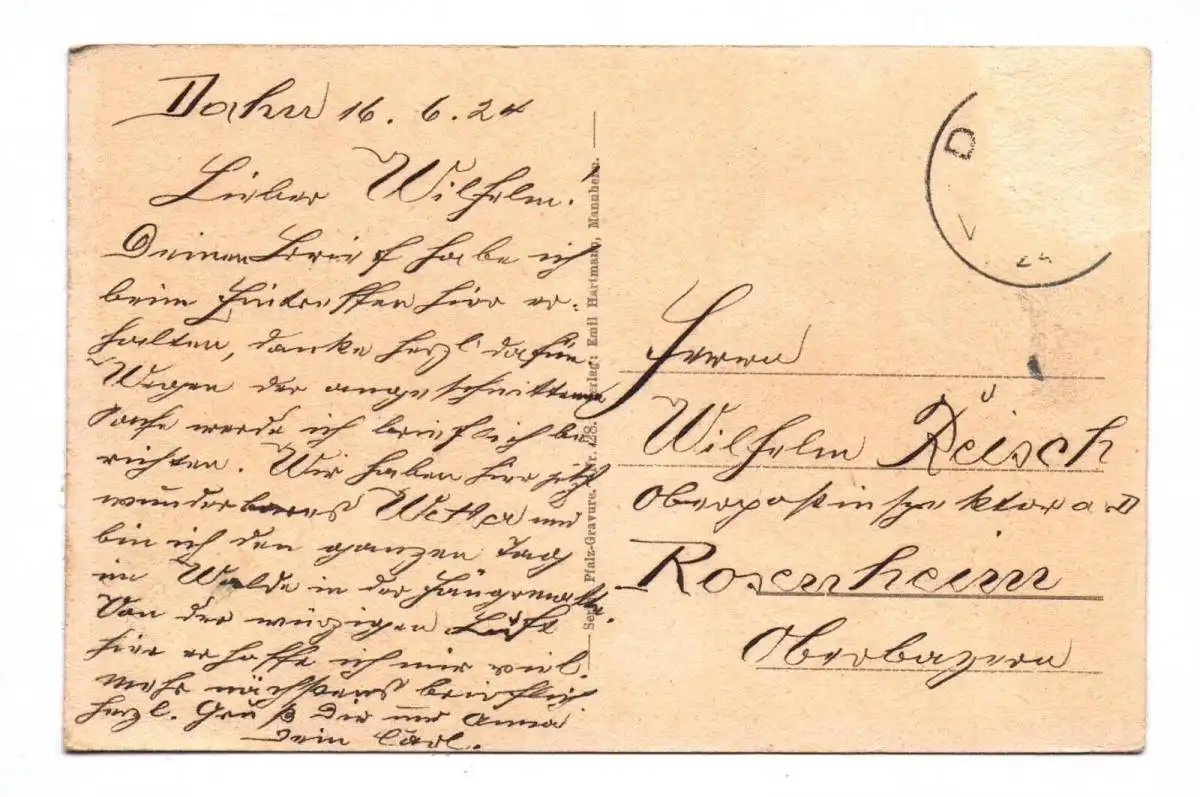 Dahn 16. 6. 24
Lieber Wilhelm!
Deinen Brief habe ich
beim Eintreffen hier er-
halten, danke herzl. dafür
Wegen der angeschnittenen
Sache werde ich brieflich be
richten. Wir haben hier jetzt
wunderbares Wetter und
bin ich den ganzen Tag
im Walde in der Hängematte.
Von der würzigen Luft
hier erhoffe ich mir viel.
mehr nächstens brieflich
herzl. Gruß Dir und Anna
Dein Carl.
Pfalz-Gravure. Nr. 28. Verlag: Emil Hartmann, Mannheim.
D
24
Herrn
Wilhelm Reisch
Oberpostinspektor a D
Rosenheim
Oberbayern